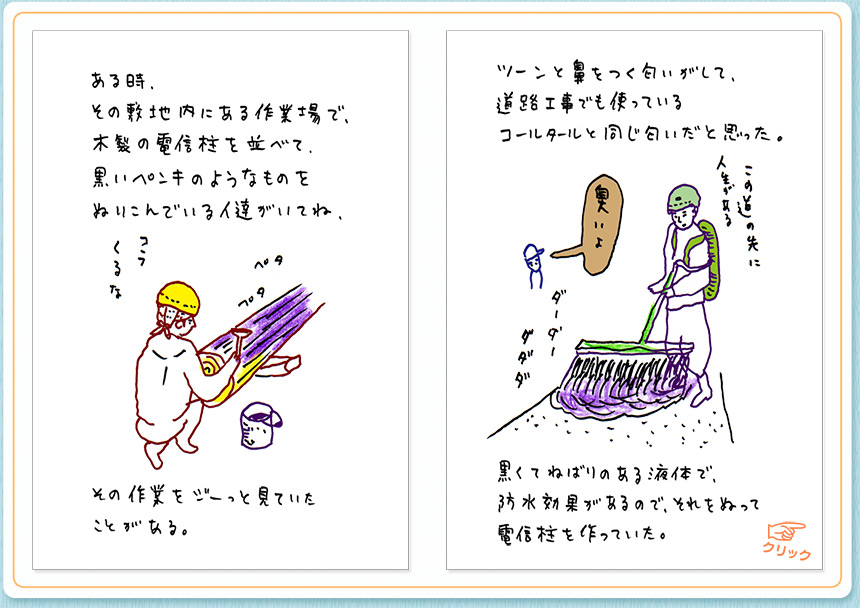 ある時、
その敷地内にある作業場で、
木製の電信柱を並べて、
黒いペンキのようなものを
ぬりこんでいる人達がいてね、
コラ
くるな
ペタ
ペタ
その作業をジーっと見ていた
ことがある。
ツーンと鼻をつく匂いがして、
道路工事でも使っている
コールタールと同じ匂いだと思った。
この道の先に
人生がある
臭いよ
ダーダー
ダダダ
黒くてねばりのある液体で、
防水効果があるので、それをぬって
電信柱を作っていた。
クリック